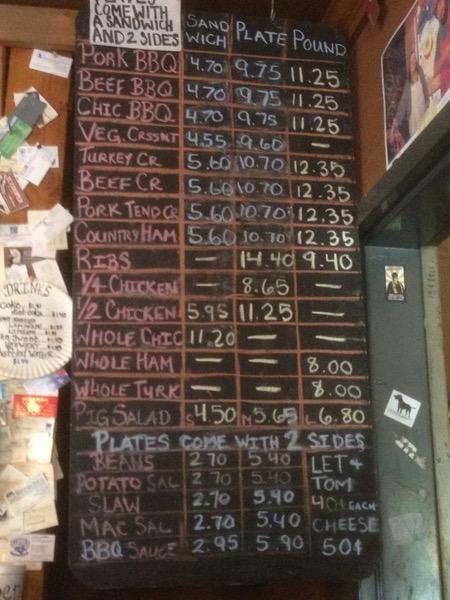 PLATES
COME WITH
A SANDWICH
AND 2 SIDES
SAND WICH PLATE POUND
PORK BBQ 4.70 9.75 11.25
BEEF BBQ 4.70 9.75 11.25
CHIC BBQ 4.70 9.75 11.25
VEG. CRSSNT 4.55 9.60 —
TURKEY CR 5.60 10.70 12.35
BEEF CR 5.60 10.70 12.35
PORK TEND CR 5.60 10.70 12.35
COUNTRY HAM 5.60 10.70 12.35
RIBS — 14.40 9.40
1/4 CHICKEN — 8.65 —
1/2 CHICKEN 5.95 11.25 —
WHOLE CHIC 11.20 — —
WHOLE HAM — — 8.00
WHOLE TURK — — 8.00
PIG SALAD S 4.50 M 5.65 L 6.80
PLATES COME WITH 2 SIDES
BEANS 2.70 5.40 LET &
POTATO SAL 2.70 5.40 TOM
SLAW 2.70 5.40 40¢ EACH
MAC SAL 2.70 5.40 CHEESE
BBQ SAUCE 2.95 5.90 50¢
DRINKS